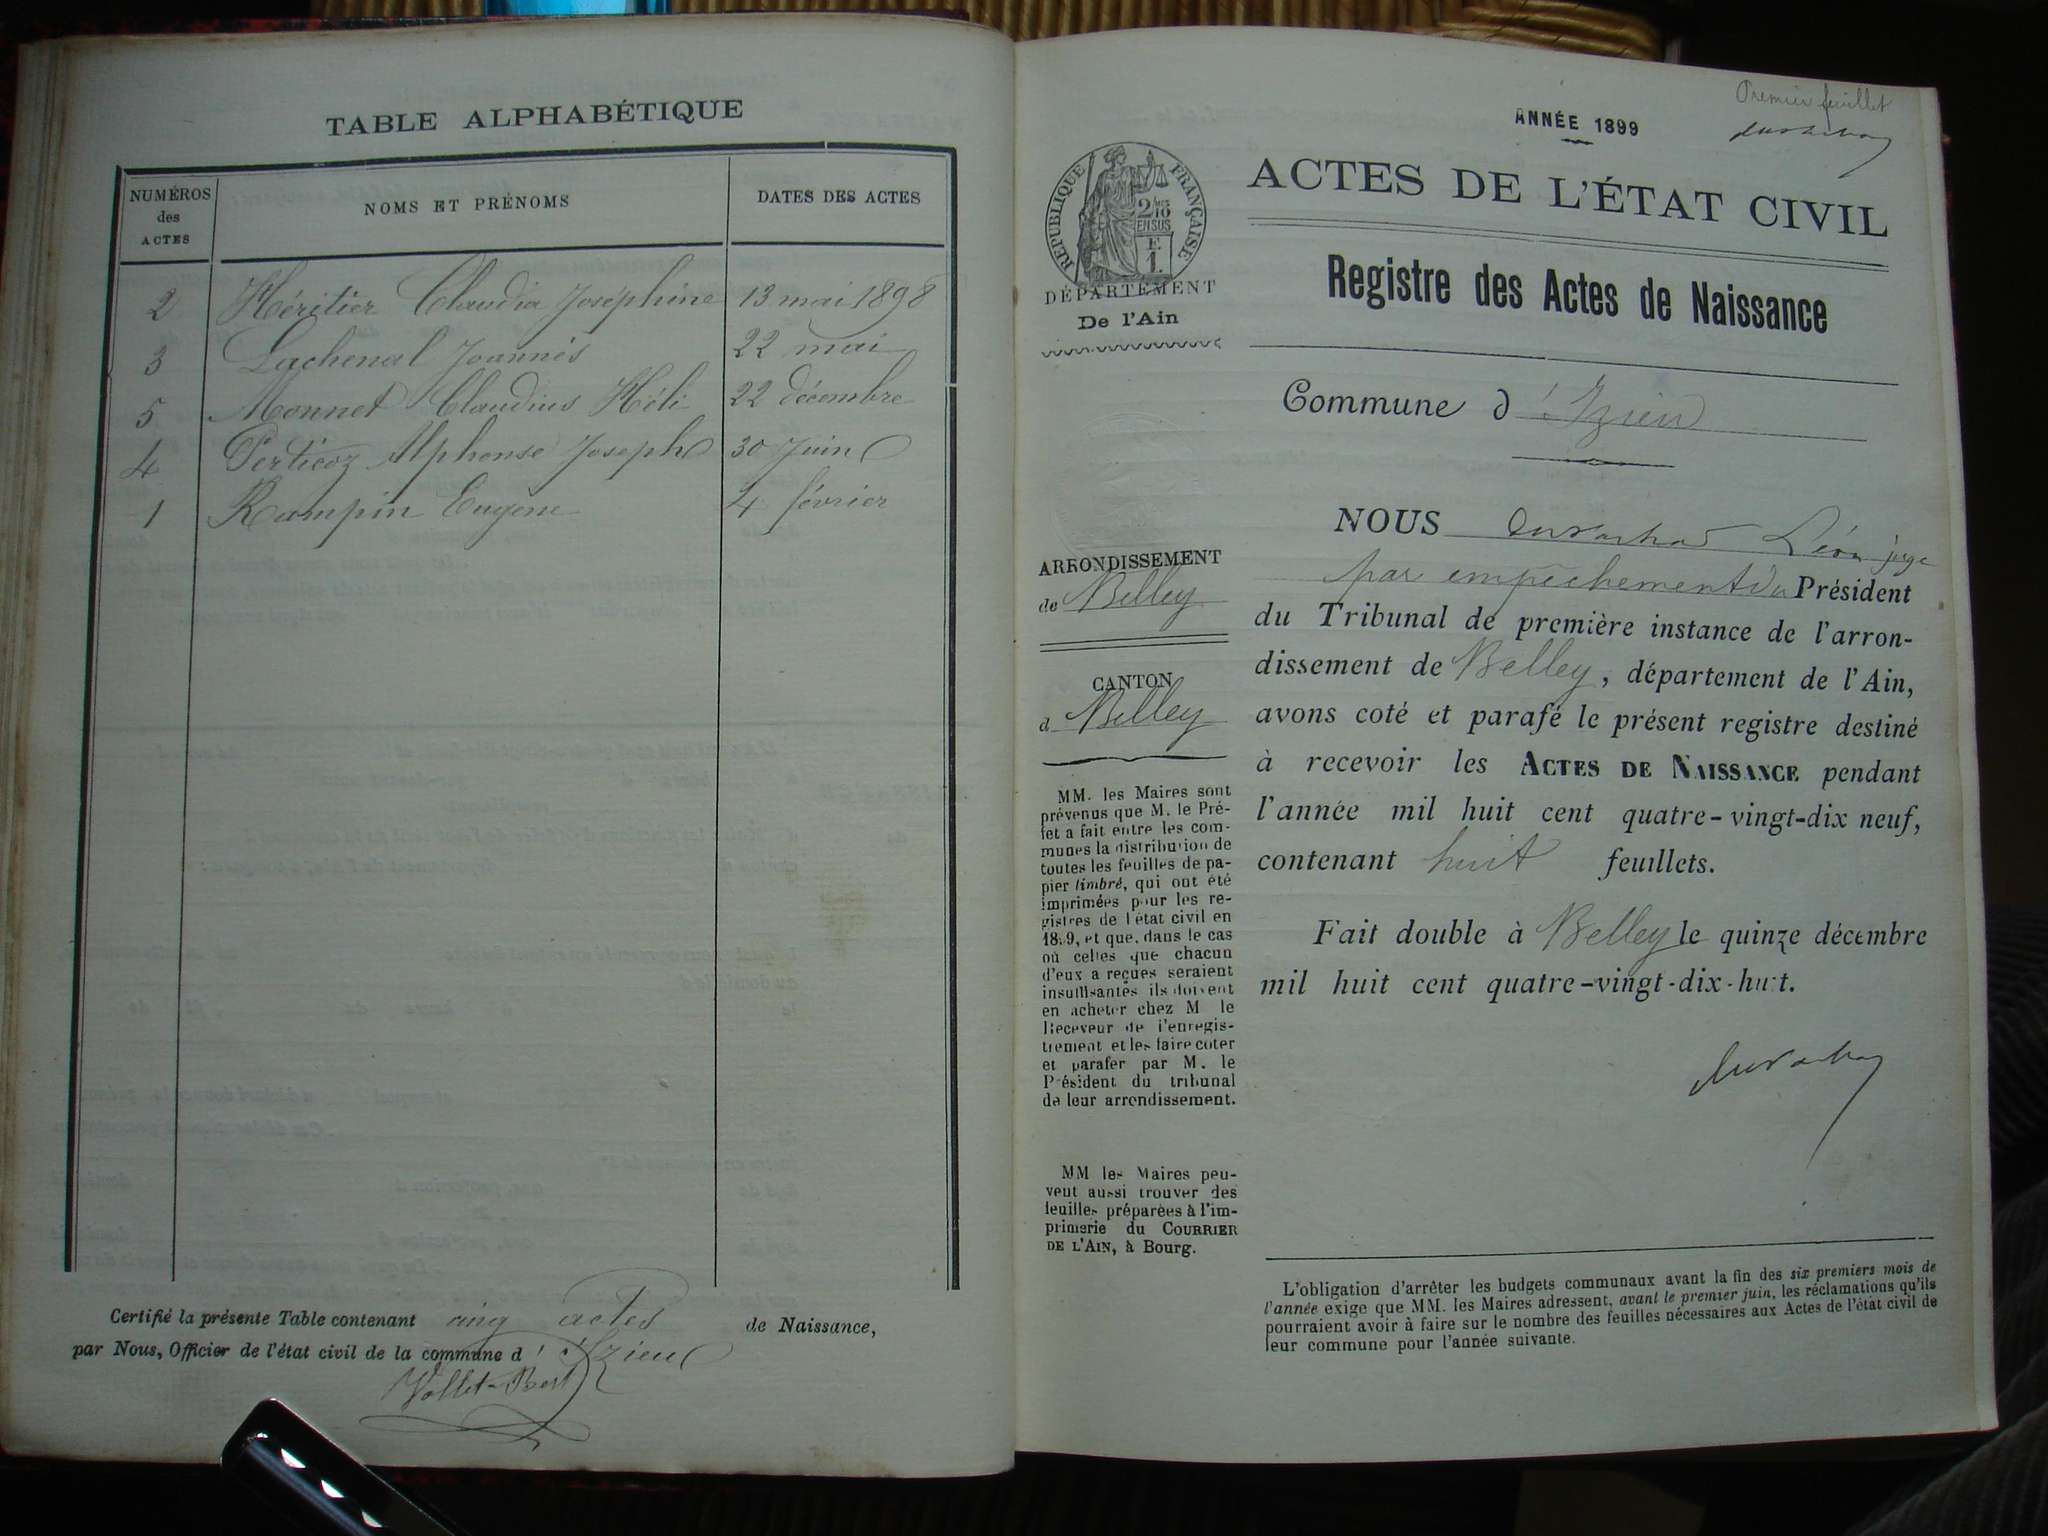 TABLE ALPHABÉTIQUE
NUMÉROS
des
ACTES
NOMS ET PRÉNOMS
DATES DES ACTES
2 Héritier Claudia Joséphine 13 mai 1898
3 Lachenal Joannès 22 mai
5 Monnet Claudius Héli 22 décembre
4 Perticoz Alphonse Joseph 30 Juin
1 Rampin Eugène 4 février
Certifié la présente Table contenant cinq actes de Naissance,
par Nous, Officier de l'état civil de la commune d'Izieu
Premier feuillet
ANNÉE 1899
RÉPUBLIQUE FRANÇAISE
2/10
EN SUS
F
1.
DÉPARTEMENT
De l'Ain
ACTES DE L'ÉTAT CIVIL
Registre des Actes de Naissance
Commune d'Izieu
ARRONDISSEMENT
de Belley
CANTON
d Belley
MM. les Maires sont
prévenus que M. le Pré-
fet a fait entre les com-
munes la distribution de
toutes les feuilles de pa-
pier timbré, qui ont été
imprimées pour les re-
gistres de l'état civil en
1899, et que, dans le cas
où celles que chacun
d'eux a reçues seraient
insuffisantes ils doivent
en acheter chez M. le
Receveur de l'enregis-
trement et les faire coter
et parafer par M. le
Président du tribunal
de leur arrondissement.
MM les Maires peu-
vent aussi trouver des
feuilles préparées à l'im-
primerie du COURRIER
DE L'AIN, à Bourg.
NOUS Léon juge
par empêchement du Président
du Tribunal de première instance de l'arron-
dissement de Belley, département de l'Ain,
avons coté et parafé le présent registre destiné
à recevoir les ACTES DE NAISSANCE pendant
l'année mil huit cent quatre-vingt-dix neuf,
contenant huit feuillets.
Fait double à Belley le quinze décembre
mil huit cent quatre-vingt-dix-huit.
L'obligation d'arrêter les budgets communaux avant la fin des six premiers mois de
l'année exige que MM. les Maires adressent, avant le premier juin, les réclamations qu'ils
pourraient avoir à faire sur le nombre des feuilles nécessaires aux Actes de l'état civil de
leur commune pour l'année suivante.